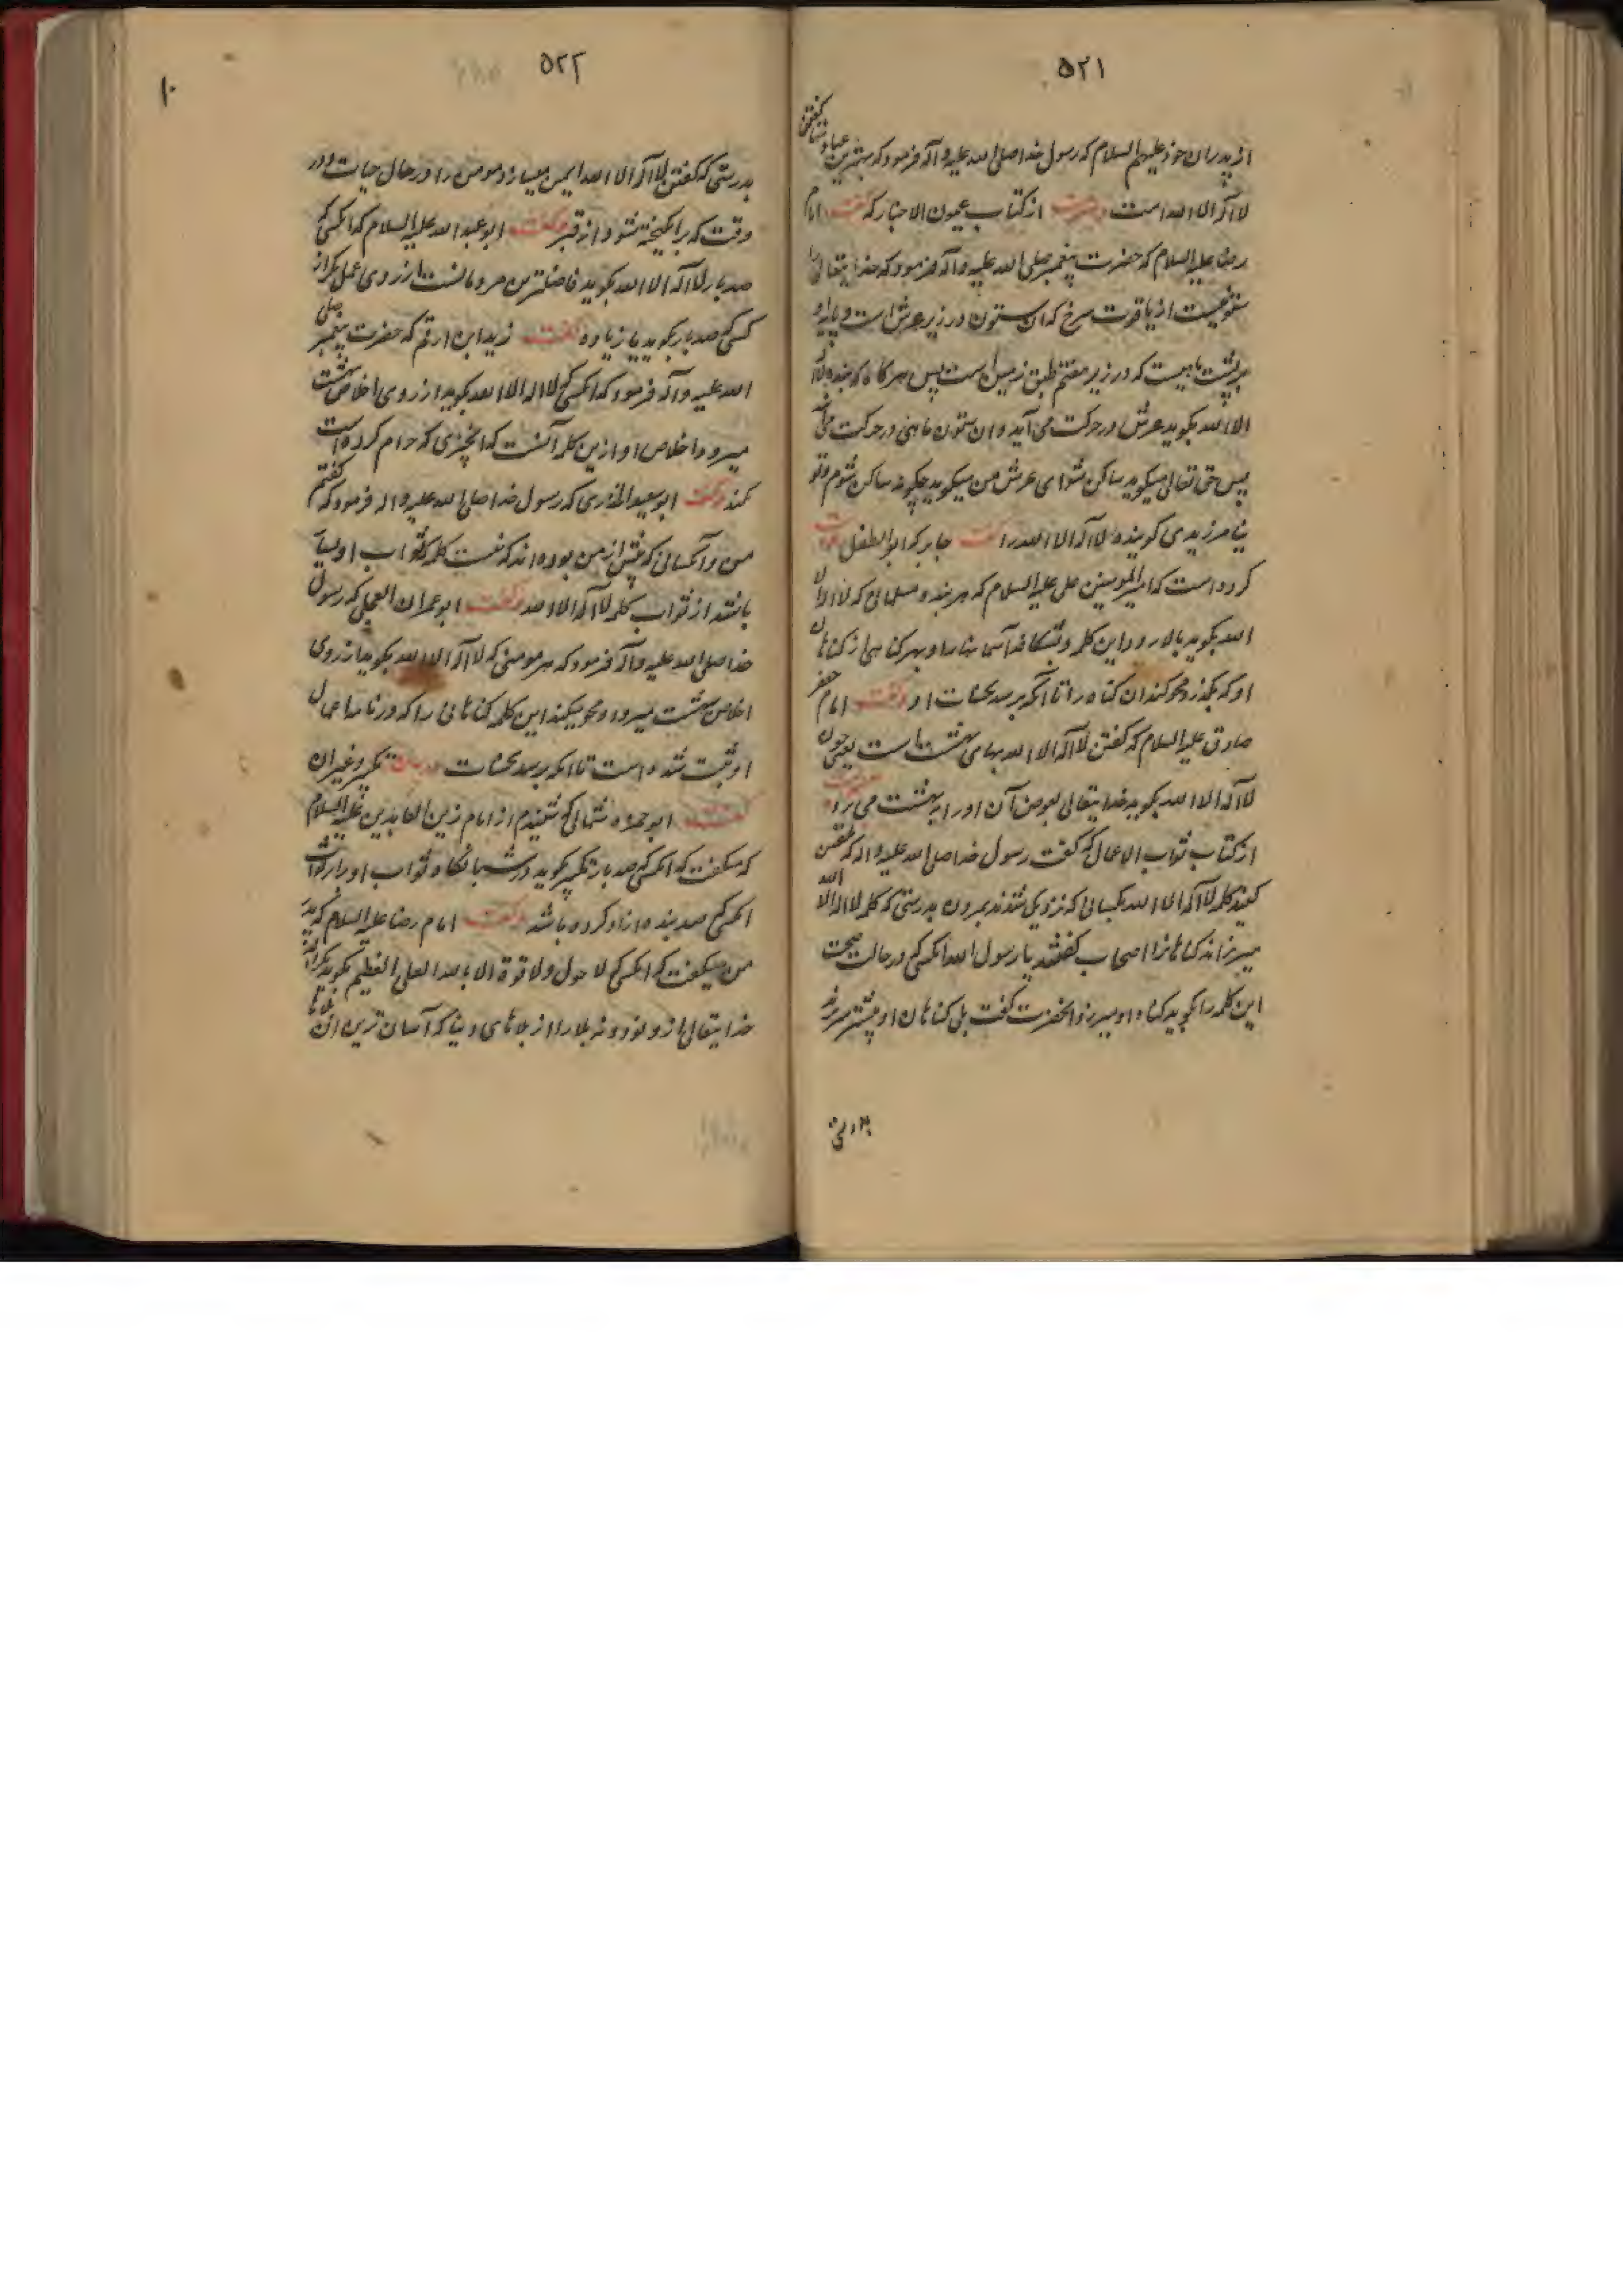 ۵۲۱
از پدران خود علیهم السلام که رسول خدا صلی الله علیه و آله فرمود که بهترین عبادتها گفتن
لا آله الا الله است از کتاب عیون الاخبار که گفت امام
رضا علیه السلام که حضرت پیغمبر صلی الله علیه و آله فرمود که خدایتعالی را
ستونیست از یاقوت سرخ که آن ستون در زیر عرش است و پایه او
بر پشت ماهیست که در زیر هفتم طبق زمین است پس هر گاه که بنده لا آله
الا الله بکوید عرش در حرکت می آید و آن ستون و ماهی در حرکت می آید
پس حق تعالی میکوید ساکن شو ای عرش من میکوید چکونه ساکن شوم و تو
نیامرزیدی کوینده لا آله الا الله را گفت جابر که ابو الطفل
کرده است که امیر المومنین علی علیه السلام که هر بنده مسلمانی که لا اله الا
الله بکوید بالا رود این کلمه و بشکافد آسمانها را و بهر کناهی از کناهان
او که بکذرد محو کند آن کناه را تا آنکه برسد بحسنات او و گفت امام جعفر
صادق علیه السلام که گفتن لا آله الا الله بهای بهشت است یعنی چون
لا آله الا الله بکوید خدایتعالی بعوض آن او را به بهشت می برد
از کتاب ثواب الاعمال که گفت رسول خدا صلی الله علیه و اله که تلقین
کنید کلمه لا آله الا الله بکسانی که نزدیک شدند بمردن بدرستی که کلمه لا اله الا الله
میریزاند کناهانرا اصحاب گفتند یا رسول الله انکسی که در حالت صحت
این کلمه را بکوید کناه او میریزد آنحضرت گفت بلی کناهان او بیشتر میریزد
بدرستی
۵۲۲
۱۰
بدرستی که گفتن لا آله الا الله ایمن میسازد مومن را در حال حیات و در
وقت که برانکیخته شود از قبر و گفت ابو عبد الله علیه السلام که انکسی که
صد بار لا آله الا الله بکوید فاضلترین مردمانست از روی عمل مکر از
کسی که صد بار بکوید یا زیاده گفت زید ابن ارقم که حضرت پیغمبر صلی
الله علیه و آله فرمود که انکسی که لا اله الا الله بکوید از روی اخلاص بهشت
میرود و اخلاص او ازین کلمه آنست که انچیزی که حرام کرده است
نکند و گفت ابو سعید الخدری که رسول خدا صلی الله علیه و اله فرمود که نگفتم
من و آنکسانی که پیش از من بوده اند که نیست کلمه که ثواب او بسیار
باشد از ثواب کلمه لا آله الا الله و گفت ابو عمران العجلی که رسول
خدا صلی الله علیه و آله فرمود که هر مومنی که لا آله الا الله بکوید از روی
اخلاص بهشت میرود و محو میکند این کلمه کناهانی را که در نامه اعمال
او ثبت شده است تا انکه برسد بحسنات در بیان تکبیر و غیر آن
گفت ابو حمزه ثمالی که شنیدم از امام زین العابدین علیه السلام
که میکفت که انکسی که صد بار تکبیر بکوید در شبانکاه ثواب او برابر ثواب
انکسی که صد بنده ازاد کرده باشد و گفت امام رضا علیه السلام که پدر
من میکفت که انکسی که لا حول و لا قوة الا بالله العلی العظیم بکوید بکرداند
خدایتعالی از و نود و نه بلا را از بلاهای دنیا که آسان ترین آن بلاها